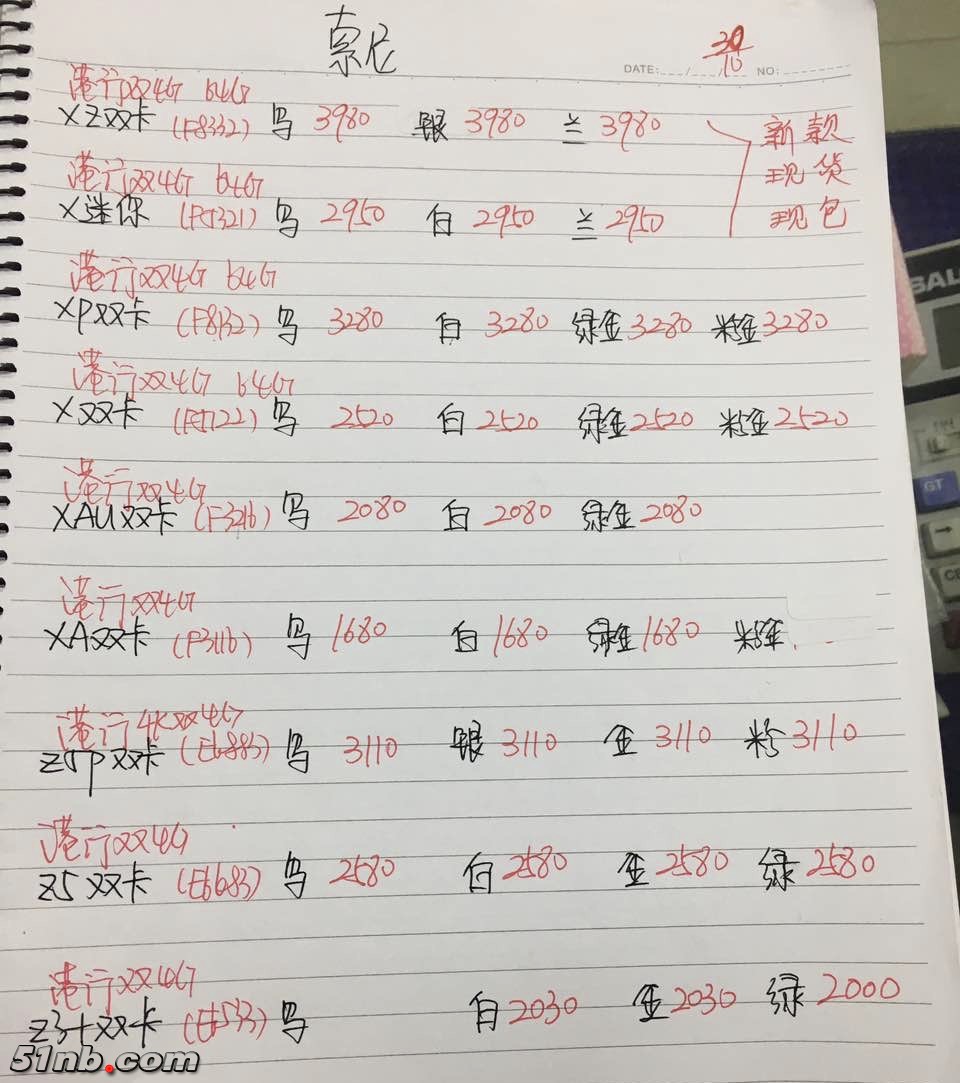 索尼
30/10
DATE: / / NO:
港行双4G 64G
XZ双卡 (F8332) 乌 3980 银 3980 兰 3980
新款
现货
现包
港行双4G 64G
X迷你 (F5321) 乌 2950 白 2950 兰 2950
港行双4G 64G
XP双卡 (F8132) 乌 3280 白 3280 绿金 3280 粉金 3280
港行双4G 64G
X双卡 (F5122) 乌 2520 白 2520 绿金 2520 粉金 2520
港行双4G
XAU双卡 (F3216) 乌 2080 白 2080 绿金 2080
港行双4G
XA双卡 (F3116) 乌 1680 白 1680 绿金 1680 粉金
港行4K双4G
Z5P双卡 (E6883) 乌 3110 银 3110 金 3110 粉 3110
港行双4G
Z5双卡 (E6683) 乌 2580 白 2580 金 2580 绿 2580
港行双4G
Z3+双卡 (E6533) 乌 白 2030 金 2030 绿 2000
51nb.com
GT